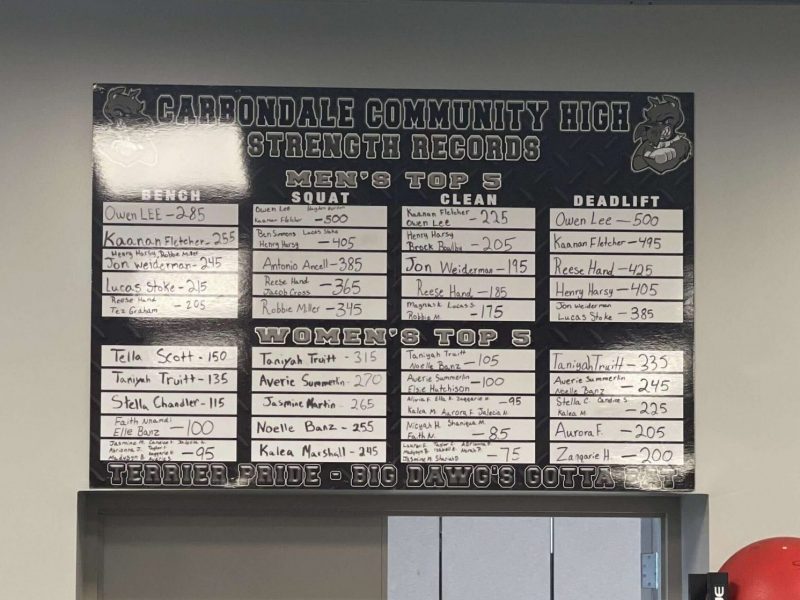 CARBONDALE COMMUNITY HIGH
STRENGTH RECORDS
MEN'S TOP 5
BENCH
Owen LEE - 285
Kaanan Fletcher - 255
Henry Harsy, Robbie Miller
Jon Weiderman - 245
Lucas Stoke - 215
Reese Hand
Tez Graham - 205
SQUAT
Owen Lee
Kaanan Fletcher - 500
Ben Simmons Lucas Stoke
Henry Harsy - 405
Antonio Ancell - 385
Reese Hand
Jacob Cross - 365
Robbie Miller - 345
CLEAN
Kaanan Fletcher
Owen Lee - 225
Henry Harsy
Brock Bowlby - 205
Jon Weiderman - 195
Reese Hand - 185
Lucas S.
Robbie M. - 175
DEADLIFT
Owen Lee - 500
Kaanan Fletcher - 495
Reese Hand - 425
Henry Harsy - 405
Jon Weiderman
Lucas Stoke - 385
WOMEN'S TOP 5
Tella Scott - 150
Taniyah Truitt - 135
Stella Chandler - 115
Faith Nnandi
Elle Banz - 100
Jasmine M.
- 95
Taniyah Truitt - 315
Averie Summerlin - 270
Jasmine Martin - 265
Noelle Banz - 255
Kalea Marshall - 245
Taniyah Truitt
Noelle Banz - 105
Averie Summerlin
Elsie Hutchison - 100
- 95
Kalea M. Aurora F. Jalecia H.
Nicyah H. Shanique M.
Faith N. - 85
- 75
Taniyah Truitt - 335
Averie Summerlin
Noelle Banz - 245
Stella C. Candice S.
Kalea M. - 225
Aurora F. - 205
Zangarie H. - 200
TERRIER PRIDE - BIG DAWG'S GOTTA EAT